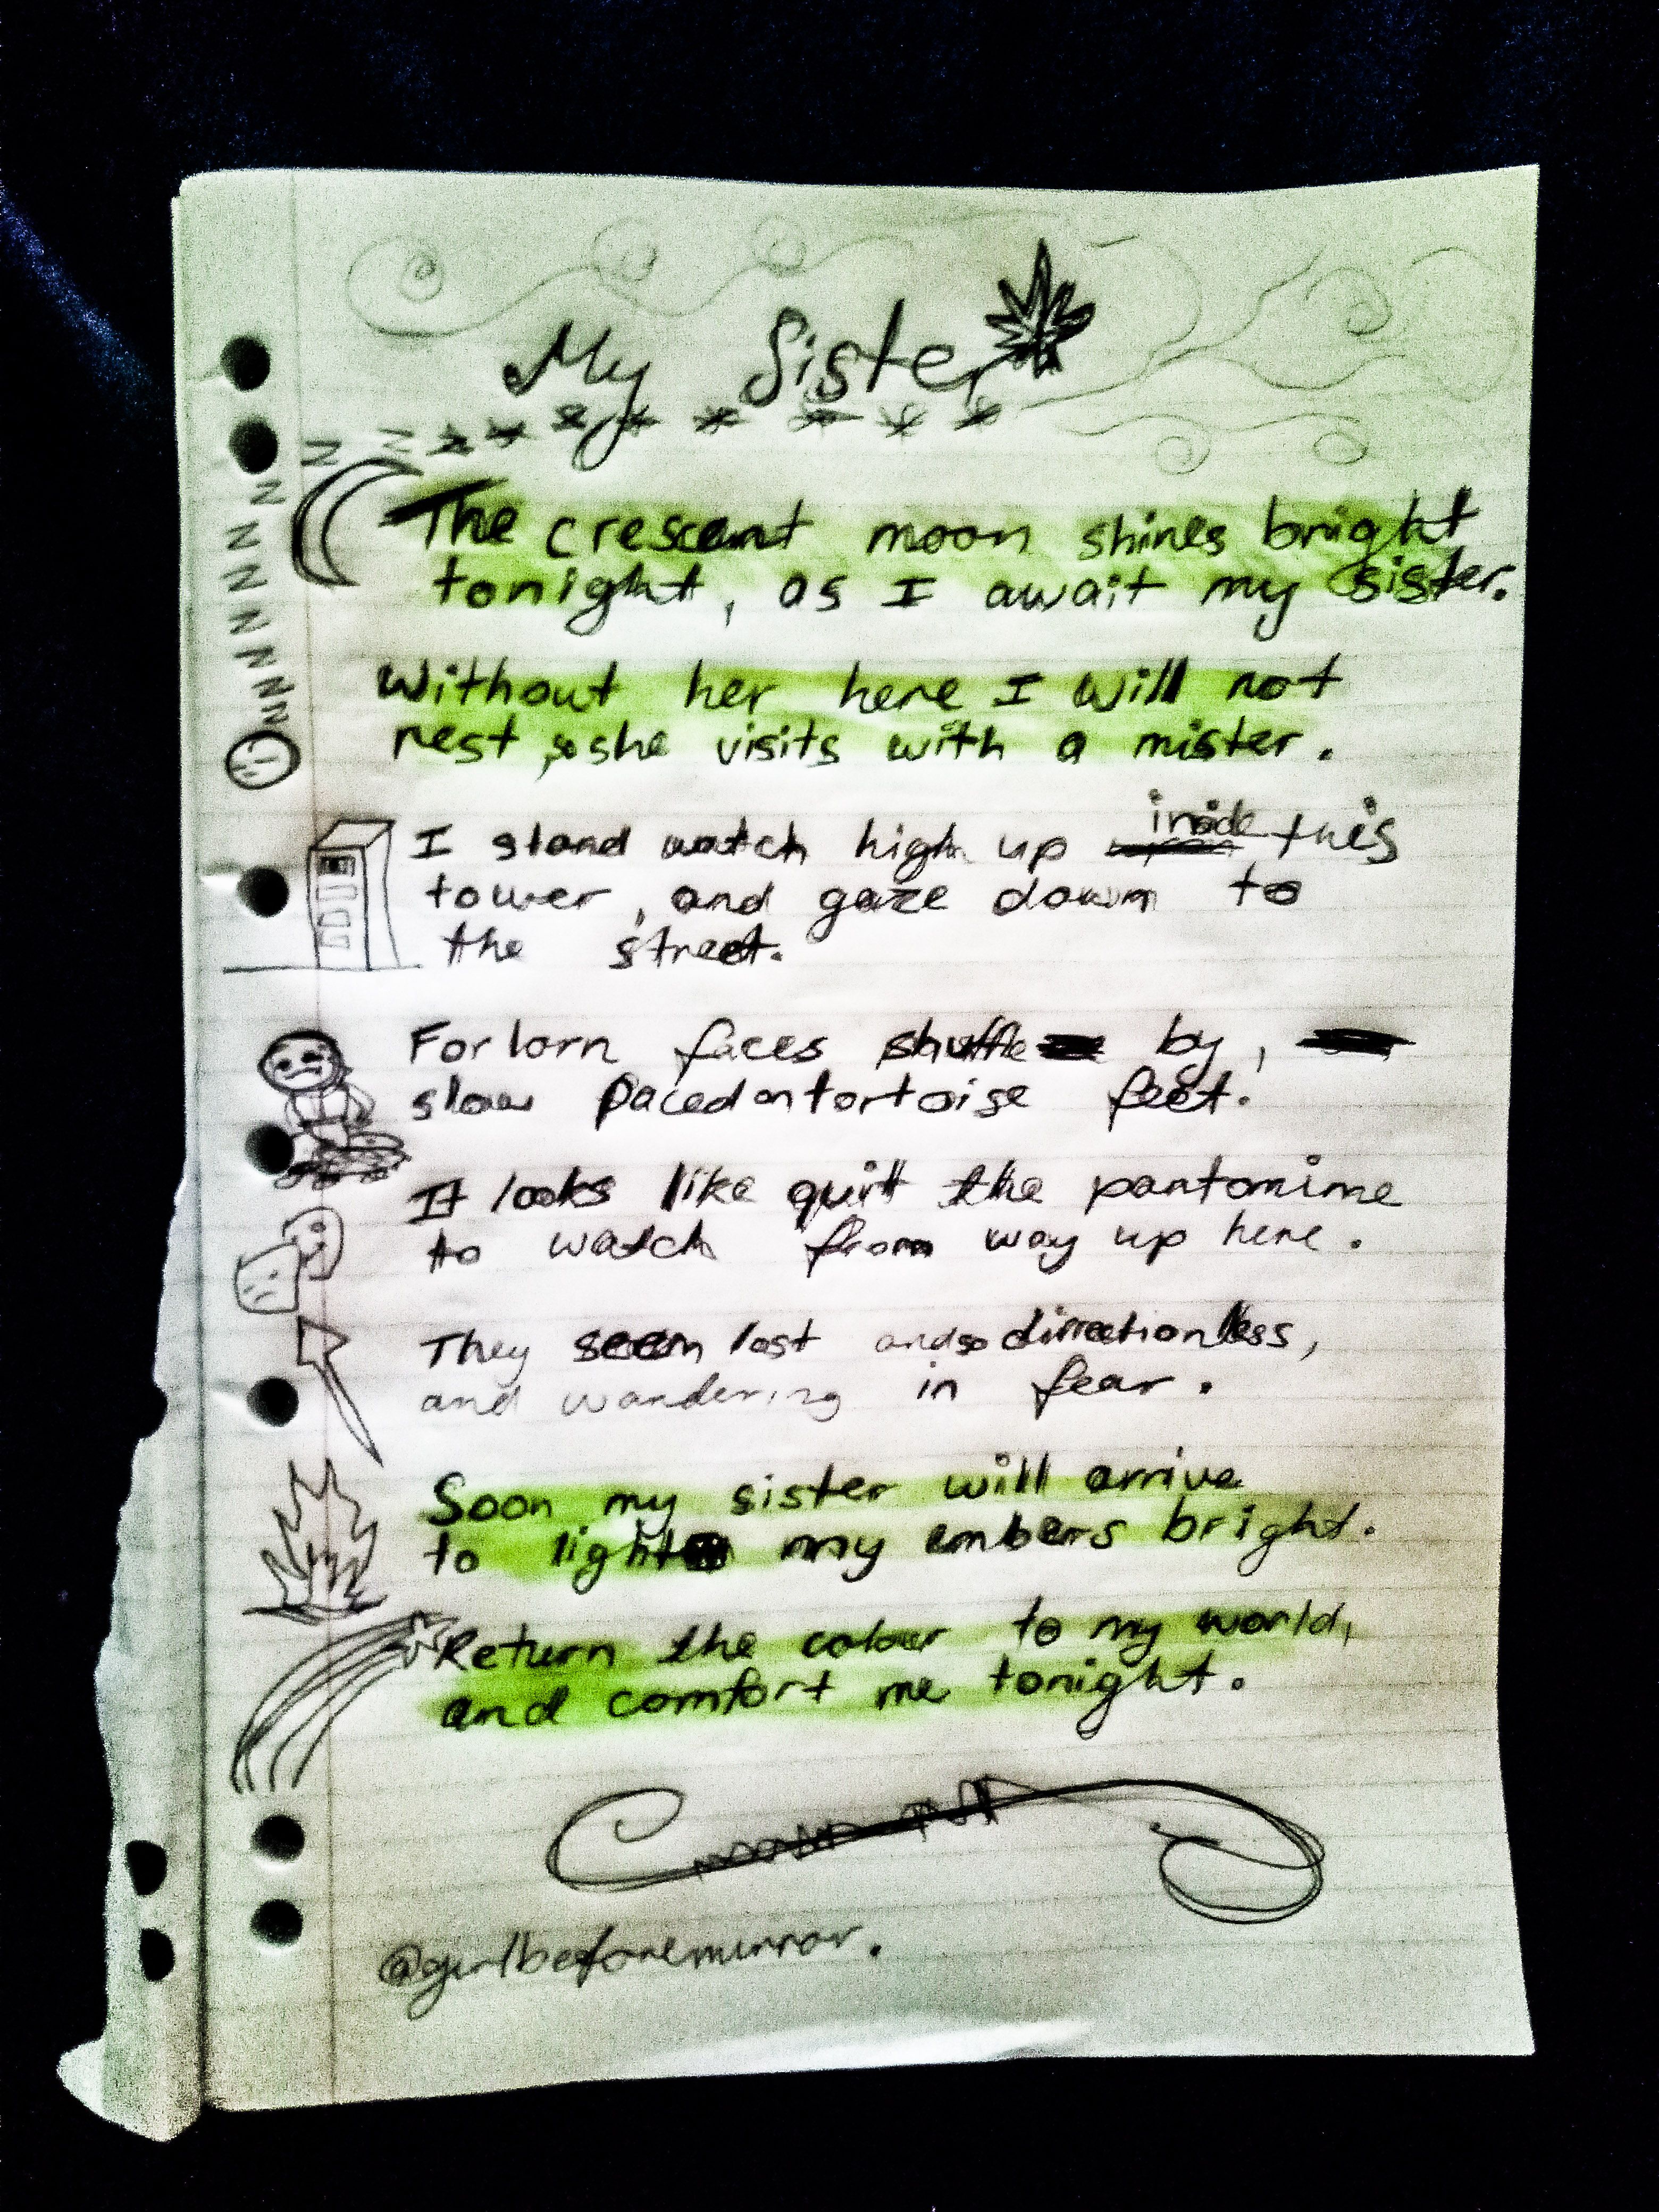 My Sister
The crescent moon shines bright
tonight, as I await my sister.
Without her here I will not
rest, so she visits with a mister.
I stand watch high up inside this
tower, and gaze down to
the street.
Forlorn faces shuffle by,
slow paced on tortoise feet.
It looks like quitt the pantomime
to watch from way up here.
They seem lost and so directionless,
and wandering in fear.
Soon my sister will arrive
to light my embers bright.
Return the colour to my world,
and comfort me tonight.
@girlbeforemirror.